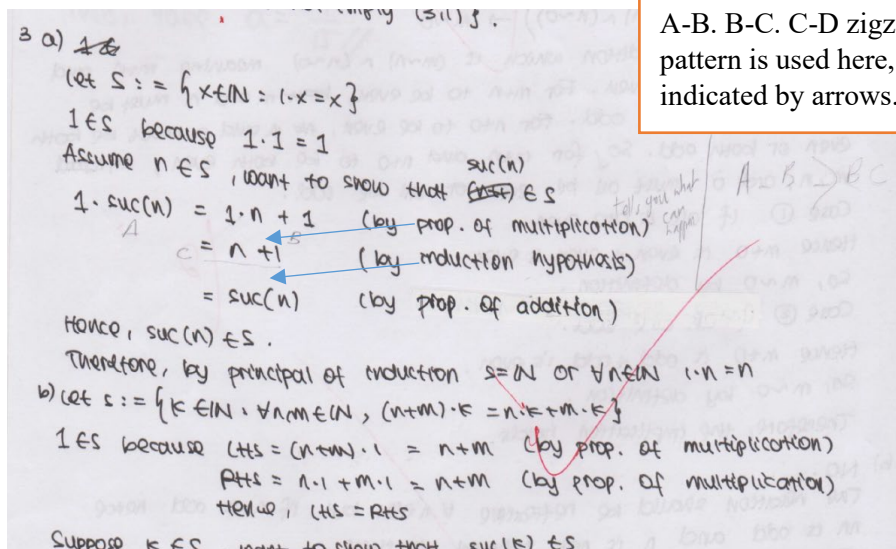 imply (3.11)}.
A-B. B-C. C-D zigz
pattern is used here,
indicated by arrows.
3 a)
Let S := { x ∈ ℕ : 1·x = x }
1 ∈ S because 1·1 = 1
Assume n ∈ S, want to show that suc(n) ∈ S
1·suc(n) = 1·n + 1 (by prop. of multiplication)
A B
tells you what can happe
A = B > B C
= n + 1 (by induction hypothesis)
C
= suc(n) (by prop. of addition)
Hence, suc(n) ∈ S.
Therefore, by principal of induction S = ℕ or ∀n ∈ ℕ 1·n = n
b) Let S := { K ∈ ℕ : ∀n,m ∈ ℕ, (n+m)·K = n·K + m·K }
1 ∈ S because LHS = (n+m)·1 = n+m (by prop. of multiplication)
RHS = n·1 + m·1 = n+m (by prop. of multiplication)
Hence, LHS = RHS
Suppose K ∈ S, want to show that suc(K) ∈ S